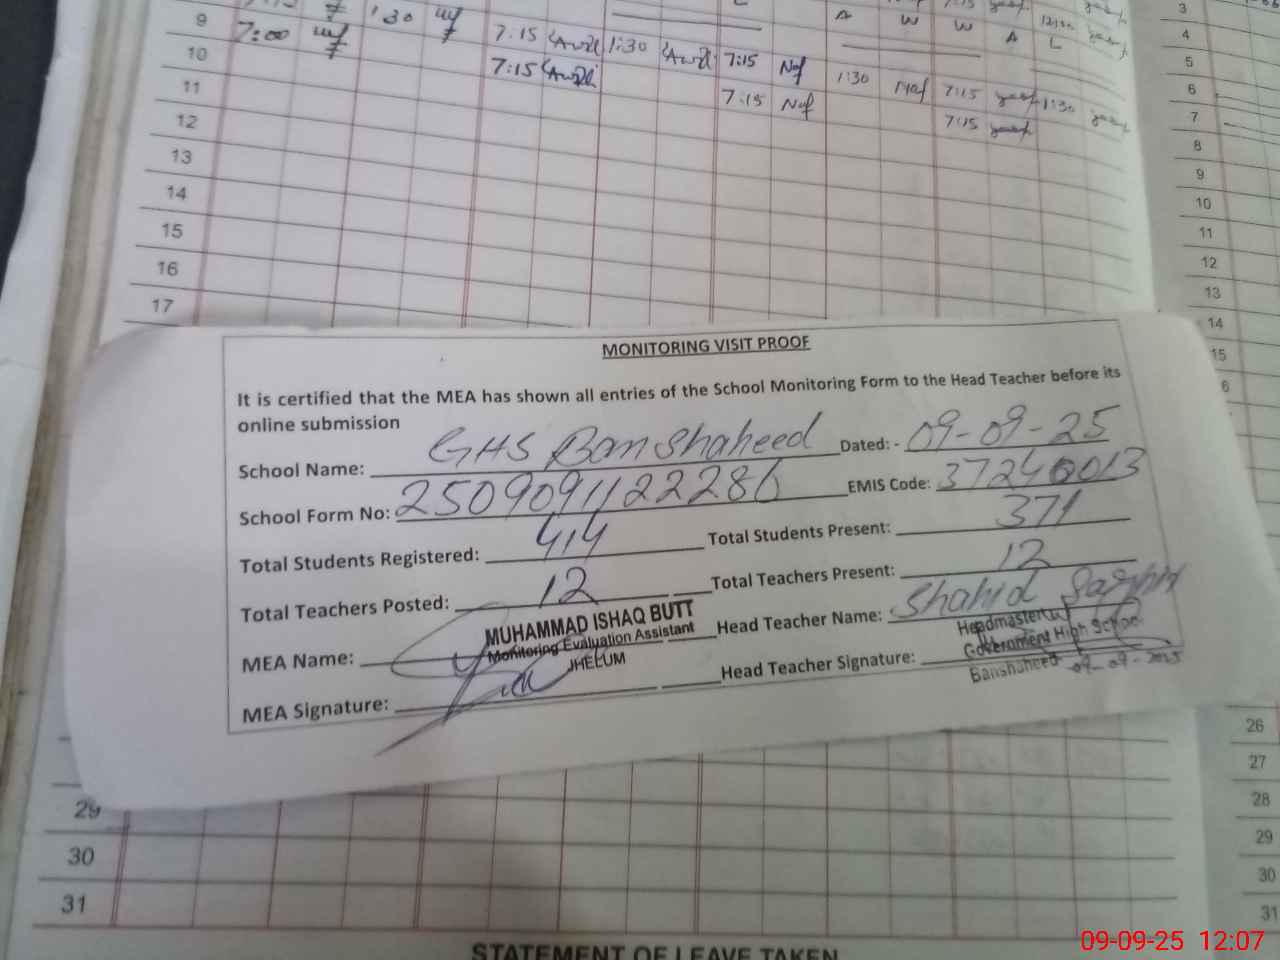 9
7:00 1:30 7:15 1:30 7:15 Naf A W W A L
10
7:15 7:15 Naf 1:30 Naf 7:15 1:30
11
7:15
12
13
14
15
16
17
3
4
5
6
7
8
9
10
11
12
13
14
15
MONITORING VISIT PROOF
It is certified that the MEA has shown all entries of the School Monitoring Form to the Head Teacher before its
online submission
School Name: GHS Ban Shaheed Dated: - 09-09-25
School Form No: 2509091122286 EMIS Code: 37240013
Total Students Registered: 414 Total Students Present: 371
Total Teachers Posted: 12 Total Teachers Present: 12
MEA Name: MUHAMMAD ISHAQ BUTT Head Teacher Name: Shahid
Monitoring Evaluation Assistant
JHELUM
Headmaster
Government High School
Banshaheed 09-09-2025
MEA Signature: Head Teacher Signature:
29
30
31
26
27
28
29
30
31
STATEMENT OF LEAVE TAKEN
09-09-25 12:07